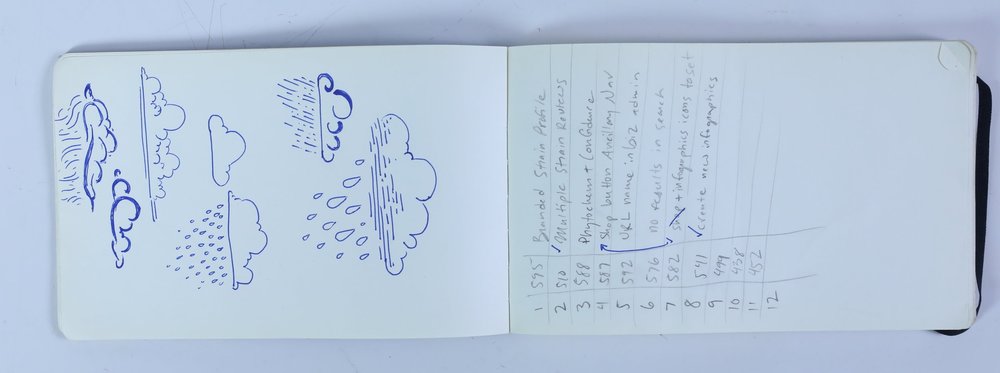 1 595 Branded Strain Profile
2 510 ✓ Multiple Strain Reviews
3 588 Phytochem + Confidence
4 587 Shop button Ancillary Nav
5 592 URL name in biz admin
6 576 no results in search
7 582 ✓ + infographics icons to set
8 541 ✓ create new infographics
9 499
10 438
11 452
12